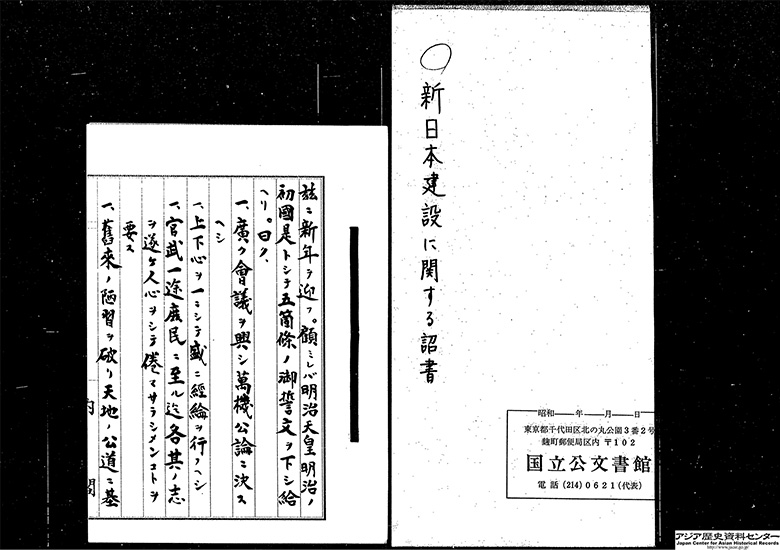 新日本建設に関する詔書
昭和 年 月 日
東京都千代田区北の丸公園3番2号
麹町郵便局区内 〒102
国立公文書館
電話 (214) 0621 (代表)
茲ニ新年ヲ迎フ。顧ミレバ明治天皇明治ノ
初國是トシテ五箇條ノ御誓文ヲ下シ給
ヘリ。曰ク、
一、廣ク會議ヲ興シ萬機公論ニ決ス
ヘシ
一、上下心ヲ一ニシテ盛ニ經綸ヲ行フヘシ
一、官武一途庶民ニ至ル迄各其ノ志
ヲ遂ケ人心ヲシテ倦マサラシメンコトヲ
要ス
一、舊來ノ陋習ヲ破リ天地ノ公道ニ基
内閣
アジア歴史資料センター
Japan Center for Asian Historical Records
http://www.jacar.go.jp